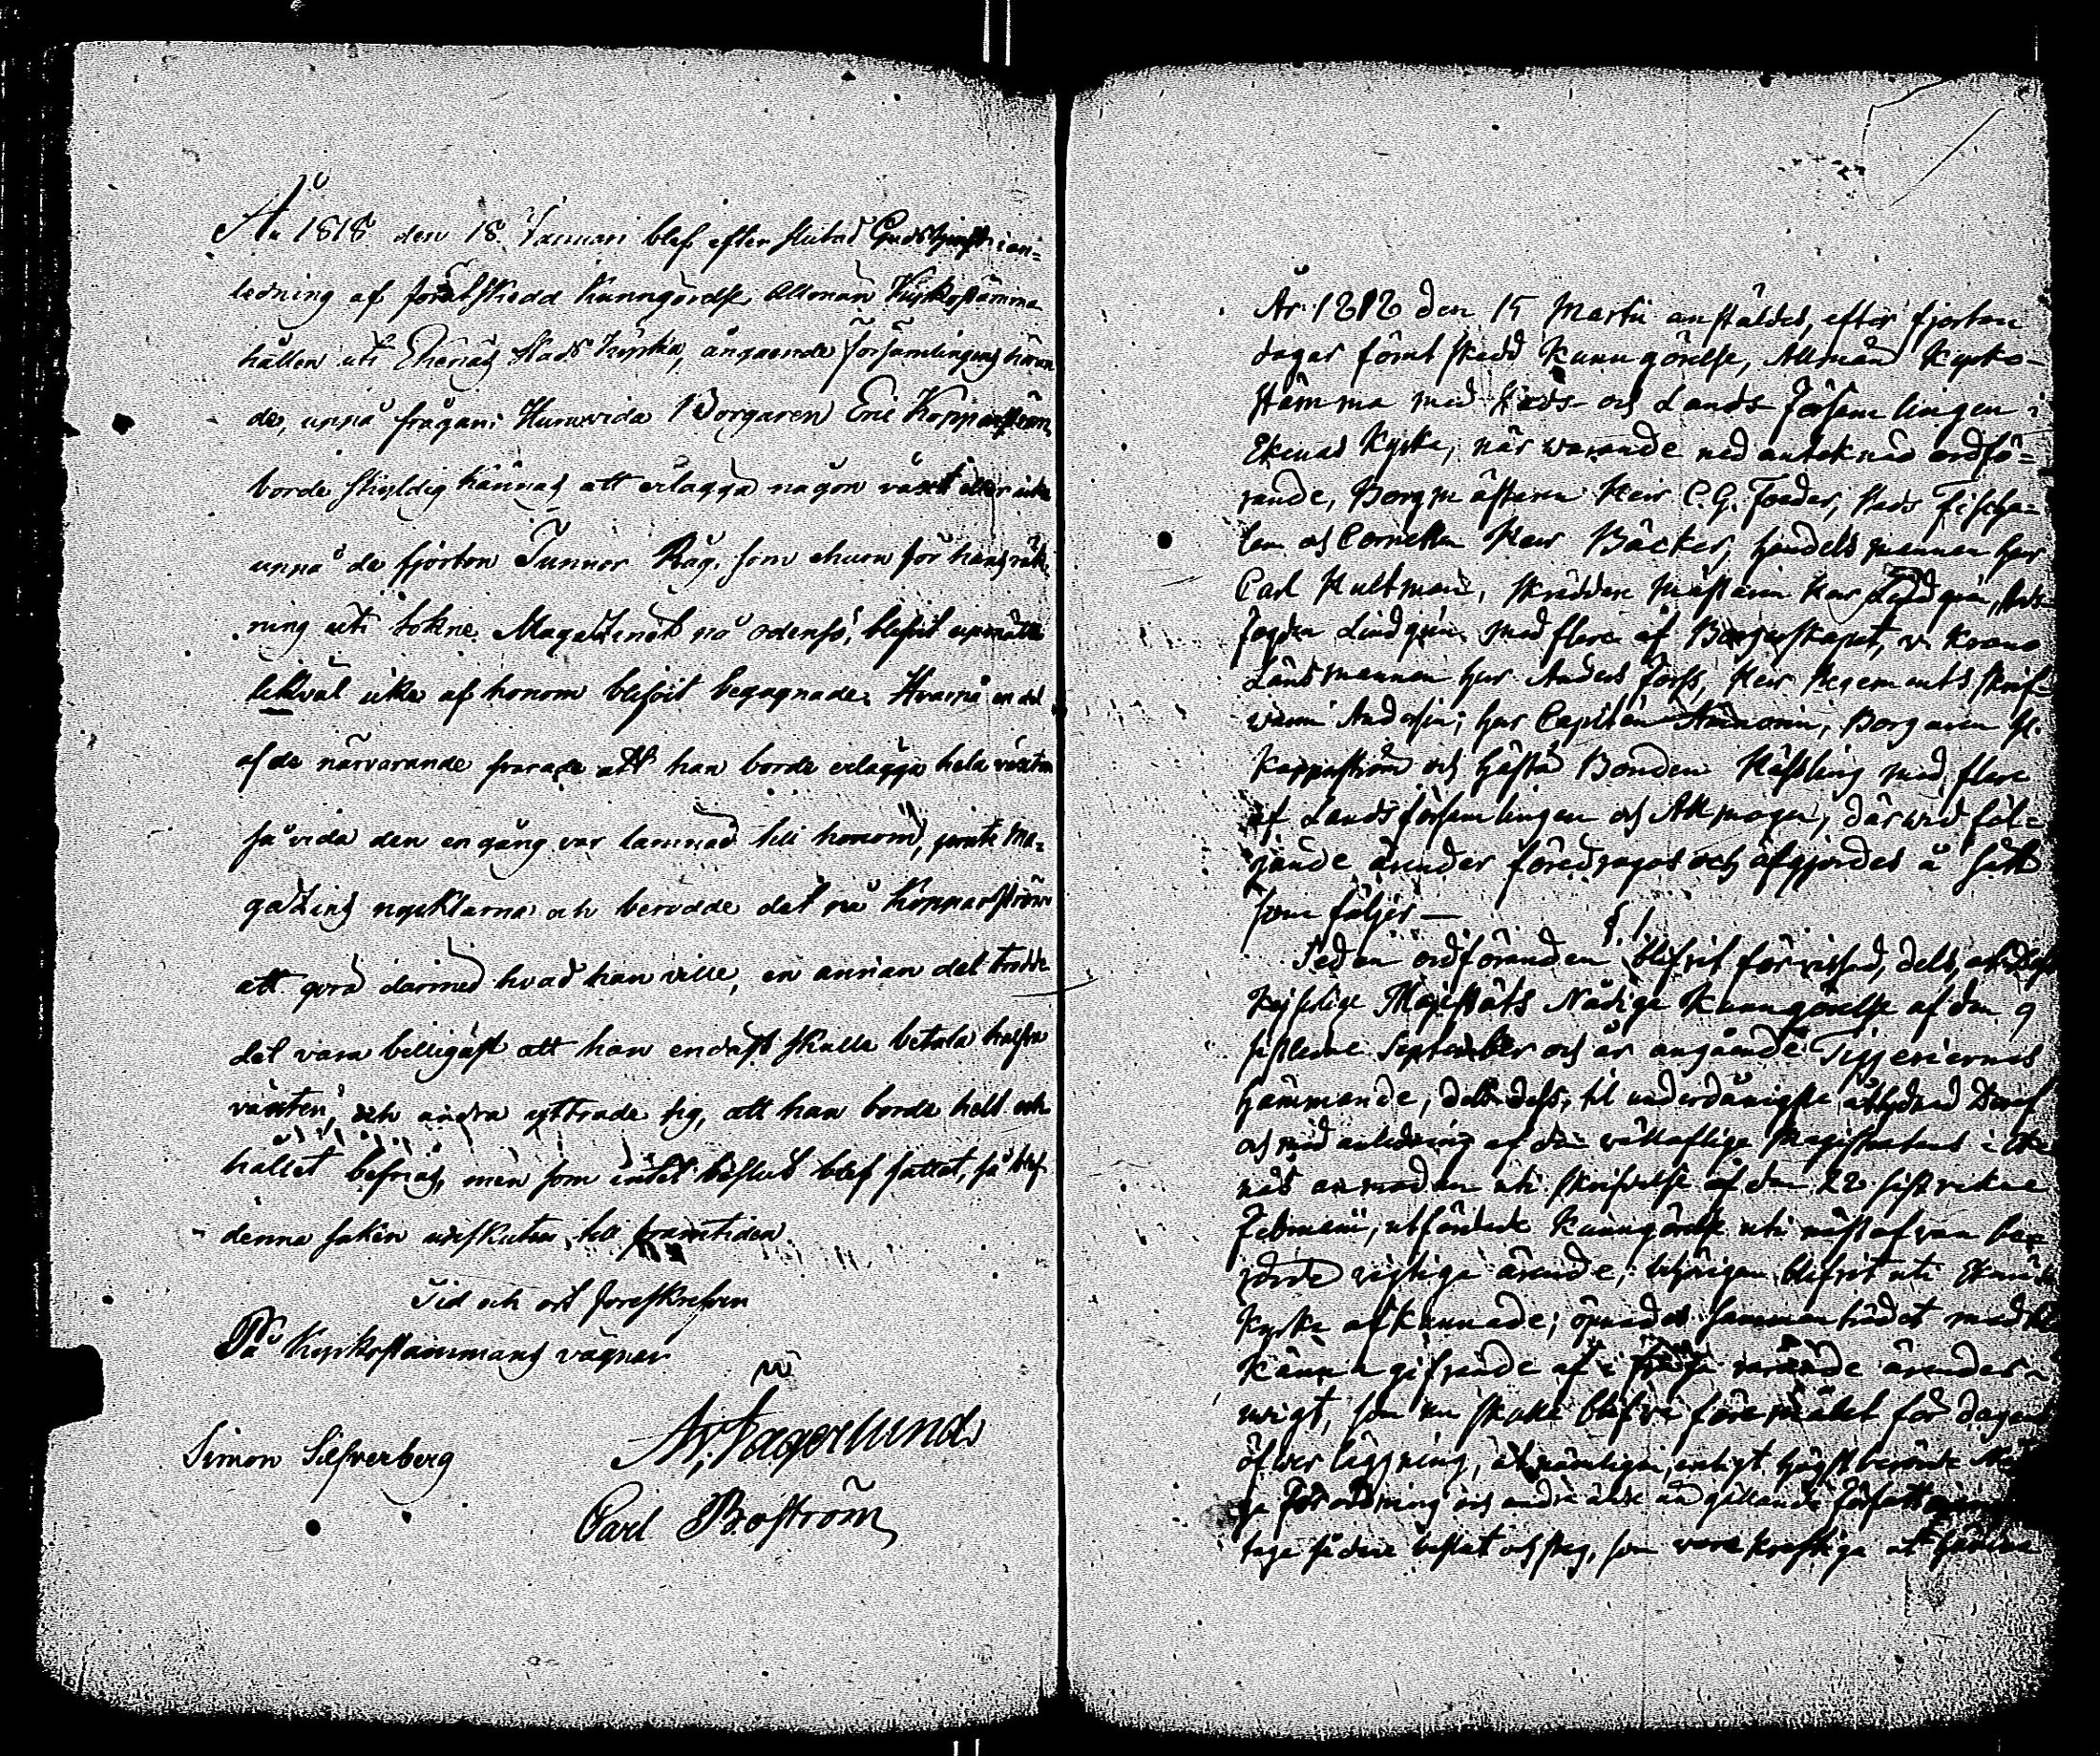 År 1818 den 18 Januari blef efter slutad Gudstjenst i an=
ledning af förutskedd Kunngörelse Allmän Kyrkostämma
hållen uti Ekenäs Stads Kyrka, angående Församlingens höran
de, uppå frågan: Huruvida Borgaren Eric Kopparström
borde skyldig kännas att erlägga någon växt eller icke
uppå de fjorton Tunnor Råg, som ehuru för hans räk
ning uti Sokne Magazinet på Odensö, blifvit upmätte
likväl icke af honom blifvit begagnade. Hvarpå en del
af de närvarande svarade att han borde erlägga hela växten
så vida den en gång var lämnad till honom, jemte Ma=
gazins nycklarna och berodde det på Kopparström
att göra därmed hvad han ville, en annan del trodde
det vara billigast att han endast skulle betala halfva
växten, och andra yttrade sig, att han borde helt och
hållet befrias, men som intet beslut blef fattat, så blef
denna saken uppskuten till framtiden.
Tid och ort föreskrefven
På Kyrkostämmans vägnar
Fagerlund
Simon Silfverberg
Carl Boström
År 1818 den 15 Martii anstäldes, efter fjorton
dagar förut skedd Kunngörelse, Allmän Kyrko-
stämma med Stads- och Lands Församlingen i
Ekenäs Kyrka, när warande ned anteknad ordfö=
rande, Borgmästaren Herr C. G. Stads Fischa=
len och Cornetten Herr Bäcker, Handelsmannen Herr
Carl Hultman, Skräddare Mästaren Herr
Lindgrén med flere af Borgerskapet, Krono
Länsmannen Herr Anders Forss, Herr Regements Skrif=
varen Herr Capiten Borgaren
Kopparström och Gästg. Bonden med flere
af Landsförsamlingen och Allmogen, därwid föl=
jande ärender föredragos och afgjordes å sätt
som följer —
§. 1
Sedan ordföranden blifvit förvissad, dels,
Kejserlige Majestäts Nådige Kunngörelse af den 9
sistledne September och år angående Tiggeriernes
hämmande, dels till underdånigste åtlydnad
och med anledning af den Magistratens i Eke
näs anmodan uti skrifvelse af den 22 sistvikne
Februarii, utfärdade Kunngörelse uti
rörde vigtiga ärende, behörigen blifvit uti Ekenäs
Kyrka afkunnade; öpnades sammanträdet med
Känna gifvande af i fråga varande ärendes
wigt, som nu skulle blifva föremålet för dagens
öfwer läggning, at nämligen, enligt högstberörde
ga Förordning och andre gällande
taga sådane beslut och steg, som vore kraftiga at hämma